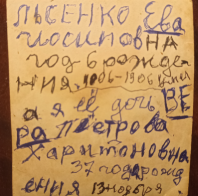 ЛЫСЕНКО Ева
ИОСИПОВНА
ГОД б РОЖДЕ
НИЯ. 1906-1906
а я её дочь ВЕ
РА ПЕТРОВА
ХАРИТОНОВНА
37 год РОЖД
ЕНИЯ 13 НОЯБРЯ